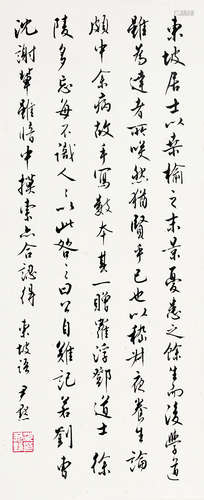 東坡居士以桑榆之末景憂患之餘生而後學道
雖為達者所咲然猶賢乎已也以嵇叔夜養生論
頗中余病故手寫數本其一贈羅浮鄧道士 徐
陵多忘每不識人人以此咎之曰公自難記若劉曹
沈謝輩雖暗中摸索亦合認得 東坡語 尹默